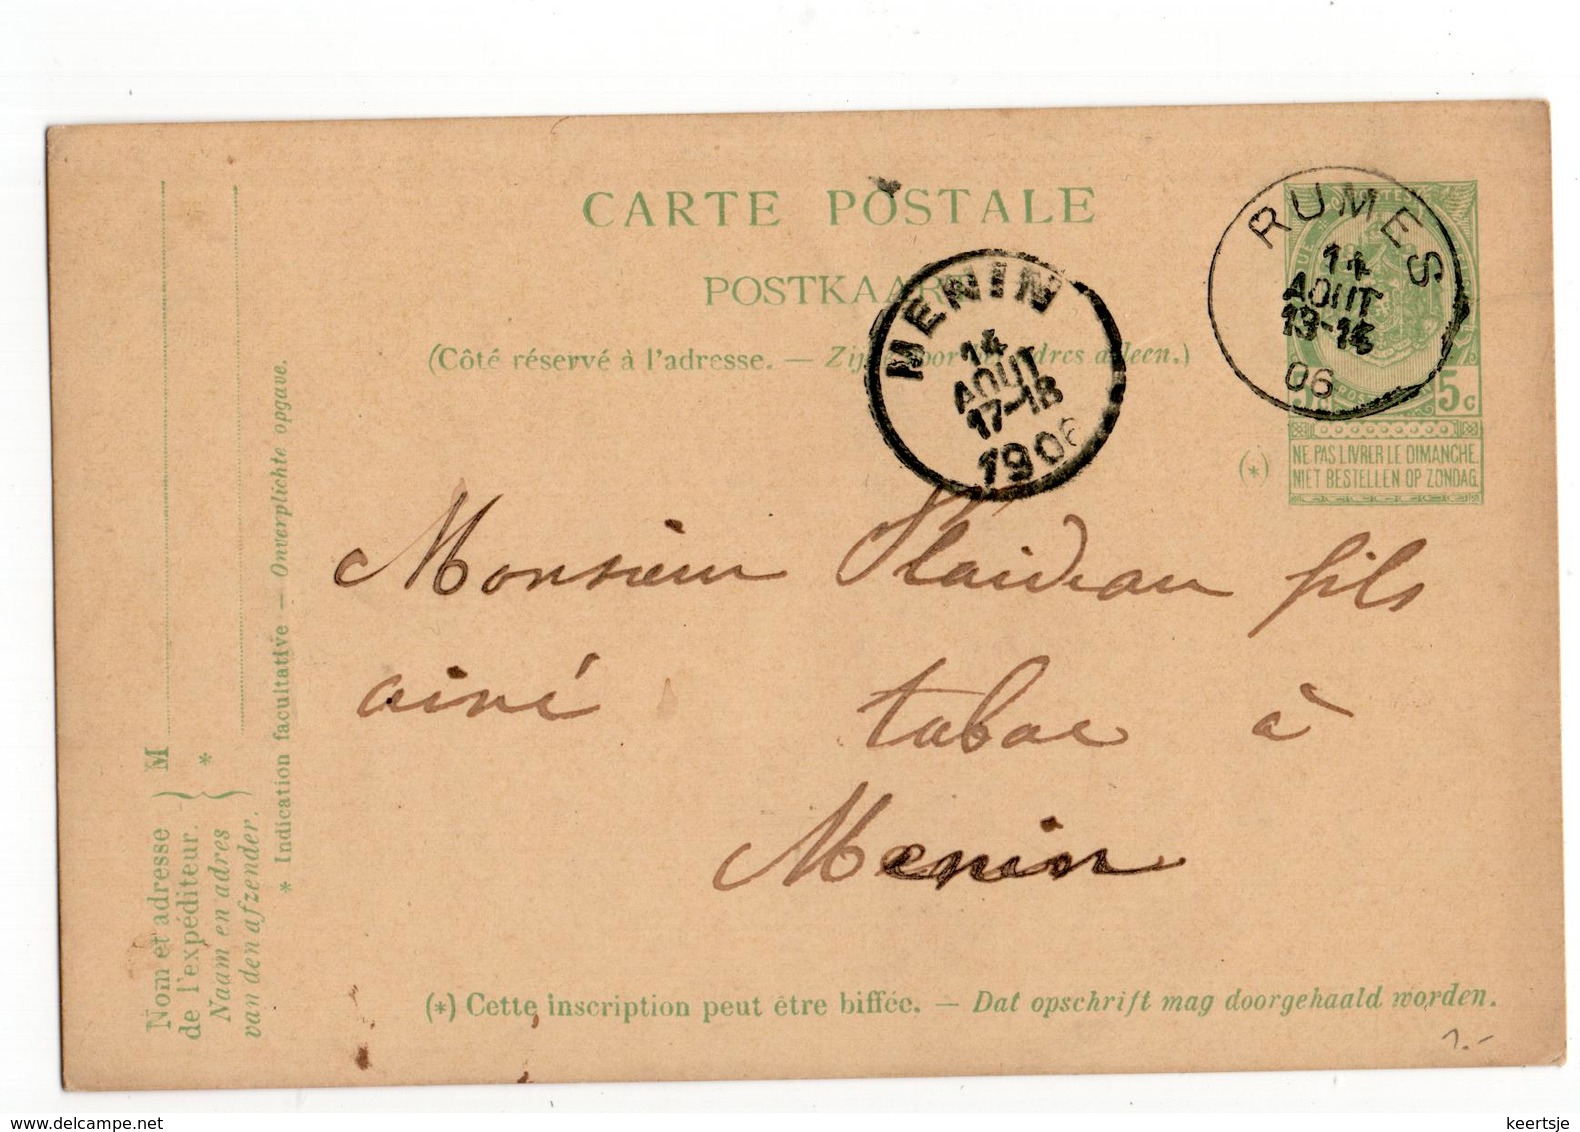 CARTE POSTALE
POSTKAART
(Côté réservé à l'adresse. — Zijde voor het adres alleen.)
RUMES
14
AOUT
13-14
06
MENIN
14
AOUT
17-18
1906
5 5c
(*)
NE PAS LIVRER LE DIMANCHE.
NIET BESTELLEN OP ZONDAG.
Monsieur Plaideau fils
ainé tabac à
Menin
(*) Cette inscription peut être biffée. — Dat opschrift mag doorgehaald worden.
1.-
Nom et adresse
de l'expéditeur.
Naam en adres
van den afzender.
M
*
* Indication facultative — Onverplichte opgave.
www.delcampe.net
keertsje